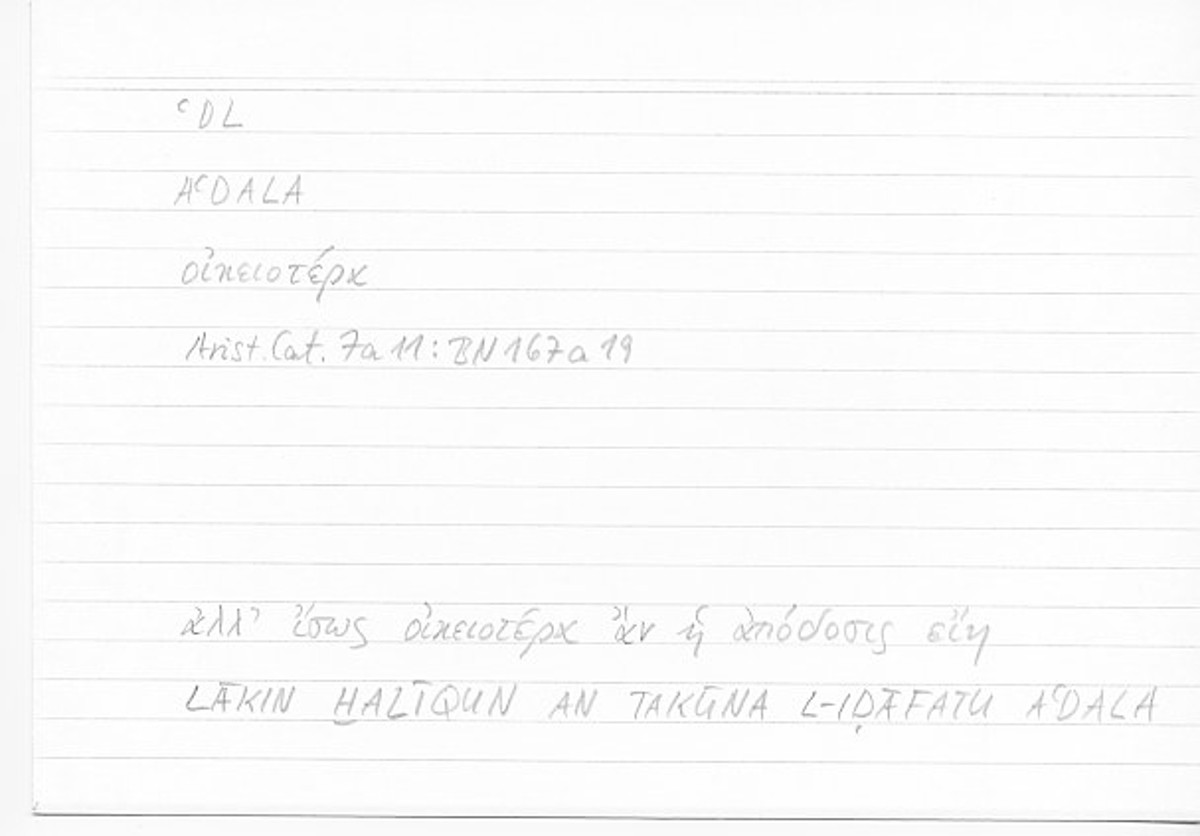 ᶜDL
AᶜDALA
οἰκειοτέρα
Arist. Cat. 7a 11 : BN 167a 19
ἀλλ᾽ ἴσως οἰκειοτέρα ἂν ἡ ἀπόδοσις εἴη
LĀKIN H̱ALĪQUN AN TAKŪNA L-IḌĀFATU AᶜDALA